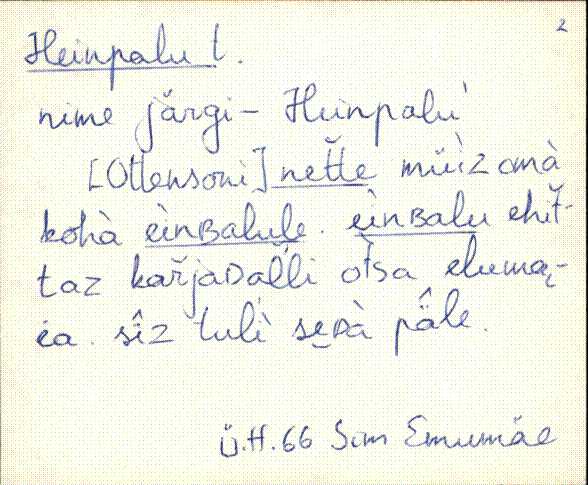 2
Heinpalu t.
nime järgi – Heinpalu
[Ottensoni] nette müìz omà
kohà èinBalule. èinBalu ehit-
taz karjaDalli otsa eluma-
ia. sîz tulì seDà pâ̈le.
Ü.H. 66 Sim Emumäe